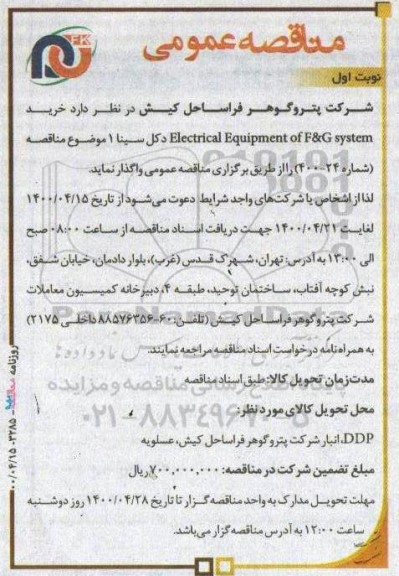 مناقصه عمومی
نوبت اول
شرکت پتروگوهر فراساحل کیش در نظر دارد خرید
Electrical Equipment of F&G system دکل سینا ۱ موضوع مناقصه
(شماره ۲۴-۴۰۰) را از طریق برگزاری مناقصه عمومی واگذار نماید.
لذا از اشخاص یا شرکت‌های واجد شرایط دعوت می‌شود از تاریخ ۱۴۰۰/۰۴/۱۵
لغایت ۱۴۰۰/۰۴/۲۱ جهت دریافت اسناد مناقصه از ساعت ۰۸:۰۰ صبح
الی ۱۳:۰۰ به آدرس: تهران، شهرک قدس (غرب)، بلوار دادمان، خیابان شفق،
نبش کوچه آفتاب، ساختمان توحید، طبقه ۴، دبیرخانه کمیسیون معاملات
شرکت پتروگوهر فراساحل کیش (تلفن: ۶۰-۸۸۵۷۶۳۵۶ داخلی ۲۱۷۵)
به همراه نامه درخواست اسناد مناقصه مراجعه نمایند.
مدت‌زمان تحویل کالا: طبق اسناد مناقصه
محل تحویل کالای مورد نظر:
DDP، انبار شرکت پتروگوهر فراساحل کیش، عسلویه
مبلغ تضمین شرکت در مناقصه: ۷۰۰,۰۰۰,۰۰۰ ریال
مهلت تحویل مدارک به واحد مناقصه‌گزار تا تاریخ ۱۴۰۰/۰۴/۲۸ روز دوشنبه
ساعت ۱۲:۰۰ به آدرس مناقصه‌گزار می‌باشد.
روزنامه
۰۰/۰۴/۱۵ - ۳۲۸۵
پایگاه اطلاع رسانی مناقصه و مزایده
۰۲۱-۸۸۳۴۹۶۷۰-۵